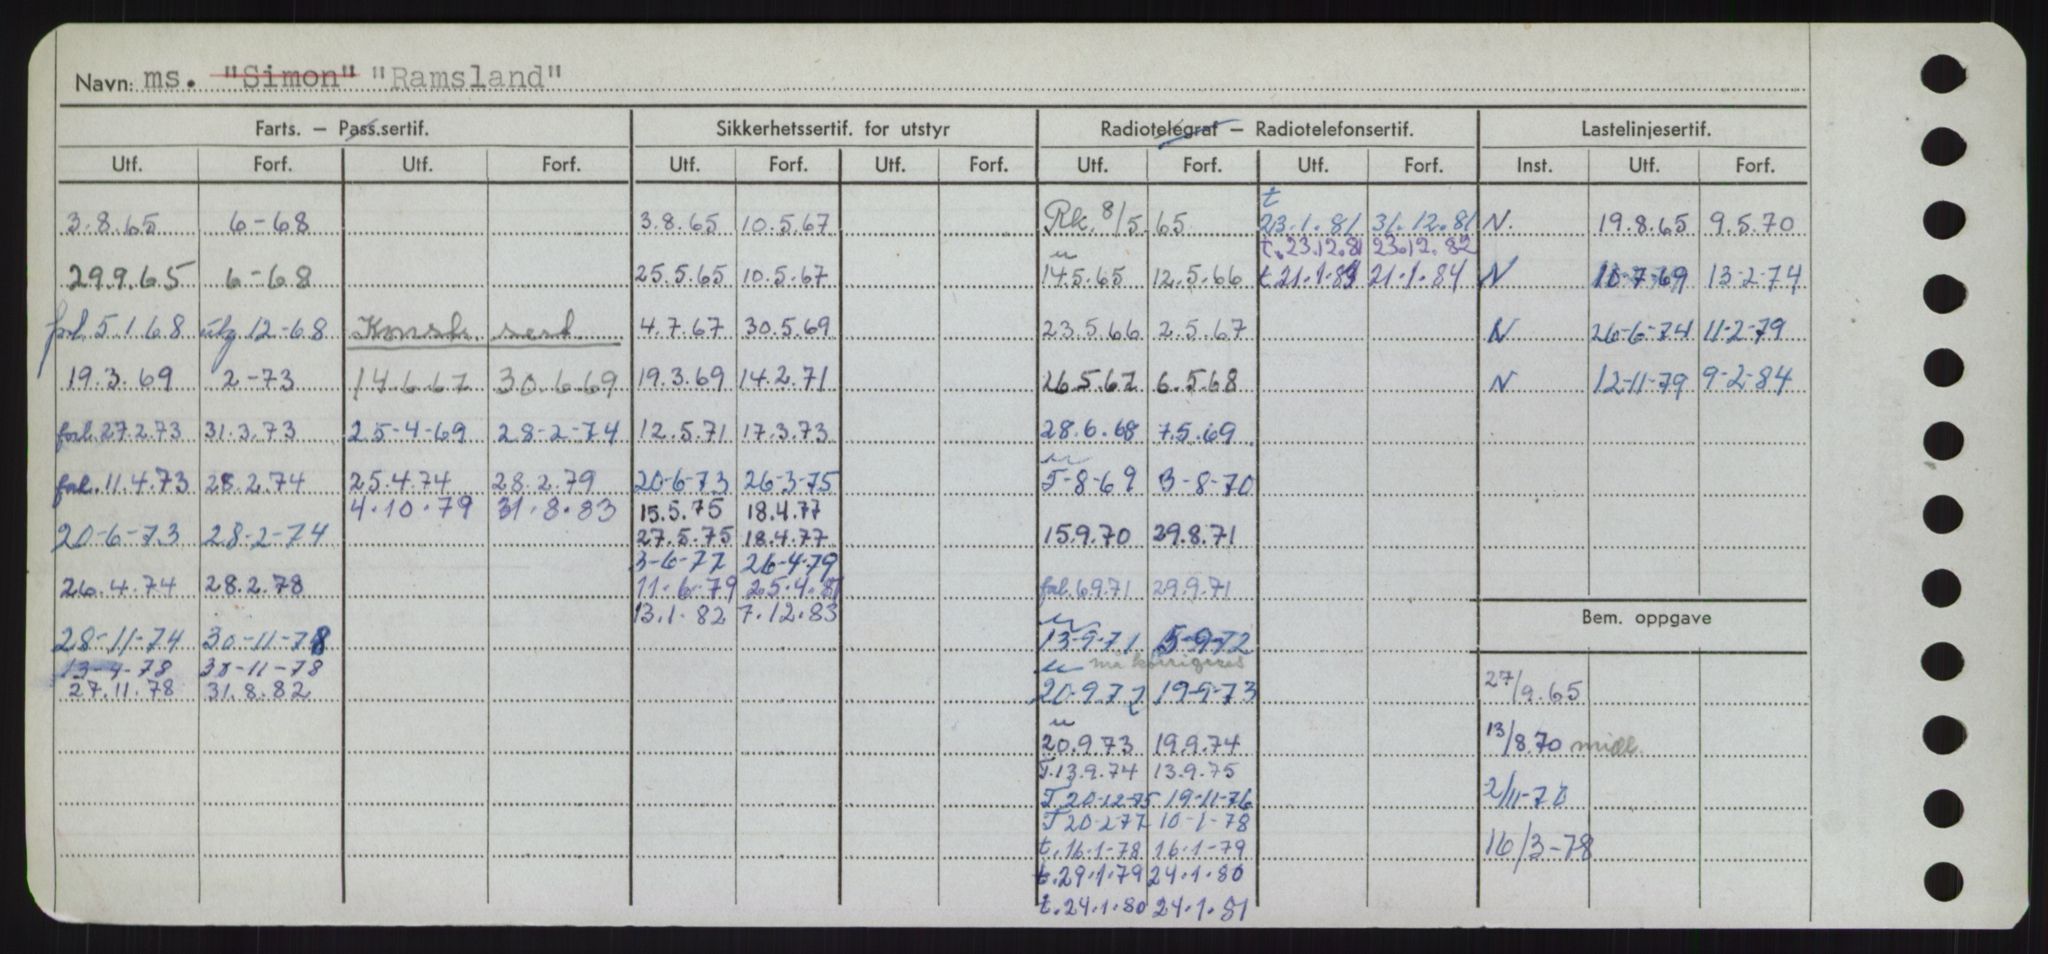 Navn: ms. "Simon" "Ramsland"
Farts. – Pass.sertif. Sikkerhetssertif. for utstyr Radiotelegraf – Radiotelefonsertif. Lastelinjesertif.
Utf. Forf. Utf. Forf. Utf. Forf. Utf. Forf. Utf. Forf. Utf. Forf. Inst. Utf. Forf.
t
3.8.65 6-68 3.8.65 10.5.67 Rk. 8/5.65 23.1.81 31.12.81 N. 19.8.65 9.5.70
t.23.12.81 23.12.82
u
29.9.65 6-68 25.5.65 10.5.67 14.5.65 12.5.66 t.21.1.83 21.1.84 N 10-7-69 13-2-74
5.1.68 utg 12-68 Konstr. sert. 4.7.67 30.5.69 23.5.66 2.5.67 N 26-6-74 11-2-79
19.3.69 2-73 14.6.67 30.6.69 19.3.69 14.2.71 26.5.67 6.5.68 N 12-11-79 9-2-84
forl. 27.2.73 31.3.73 25-4-69 28-2-74 12.5.71 17.3.73 28.6.68 7.5.69
u
forl. 11.4.73 28.2.74 25.4.74 28.2.79 20-6-73 26-3-75 5-8-69 3-8-70
4.10.79 31.8.83 15.5.75 18.4.77
20-6-73 28-2-74 27.5.75 18.4.77 15.9.70 29.8.71
3-6-77 26-4-79
26.4.74 28.2.78 11.6.79 25.4.81 forl. 6.9.71 29.9.71
13.1.82 7.12.83 Bem. oppgave
u
28-11-74 30-11-78 13-9-71 5-9-72
13-4-78 30-11-78 u må korrigeres
27.11.78 31.8.82 20.9.72 19-9-73 27/9.65
u
20.9.73 19.9.74 13/8.70 midl.
T.13.9.74 13.9.75
T 20-12-75 19-11-76 2/11-70
T 20-2-77 10-1-78
t.16.1-78 16.1-79 16/3-78
t.29.1.79 24.1.80
t.24.1.80 24.1.81